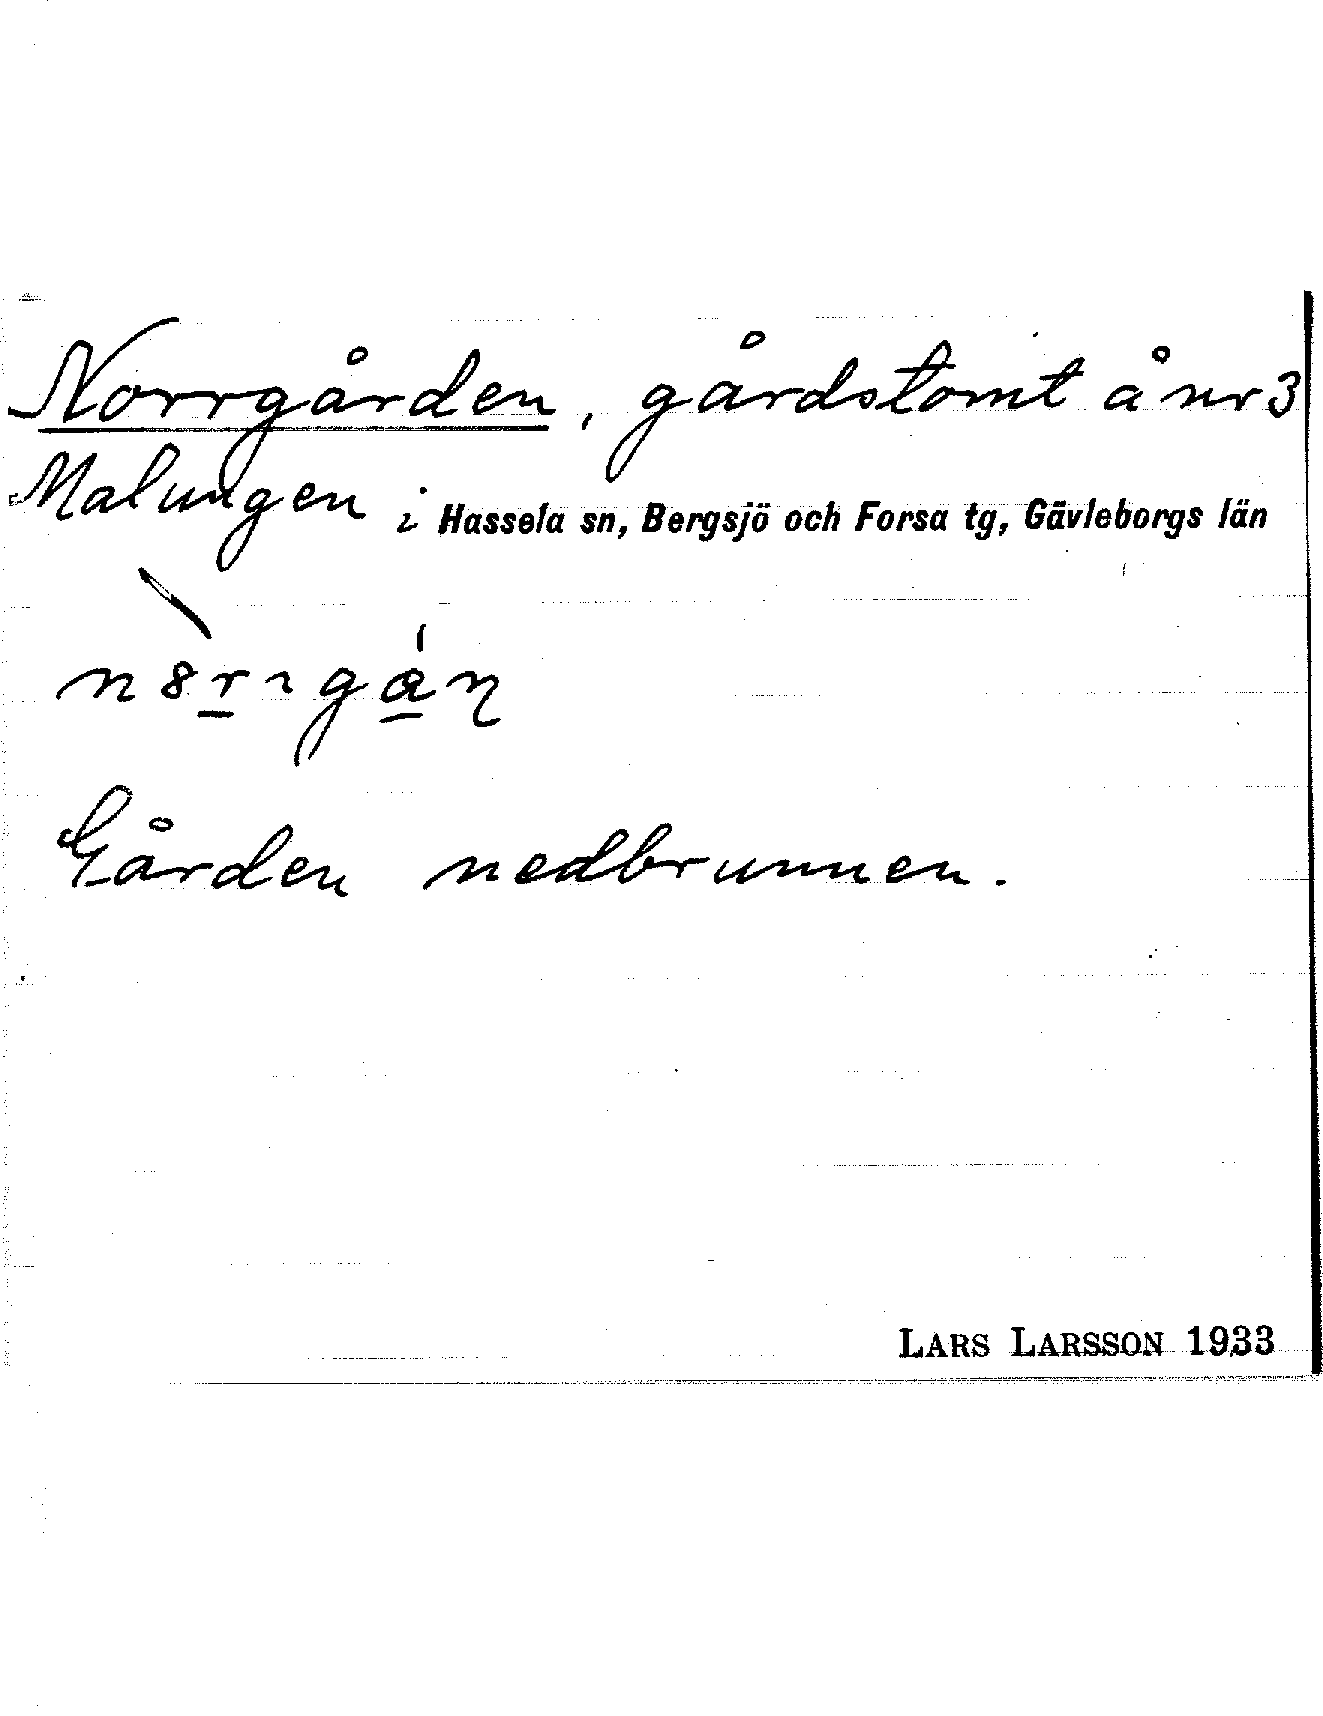 Norrgården, gårdstomt å nr 3
Malungen i Hassela sn, Bergsjö och Forsa tg, Gävleborgs län
Gården nedbrunnen.
LARS LARSSON 1933